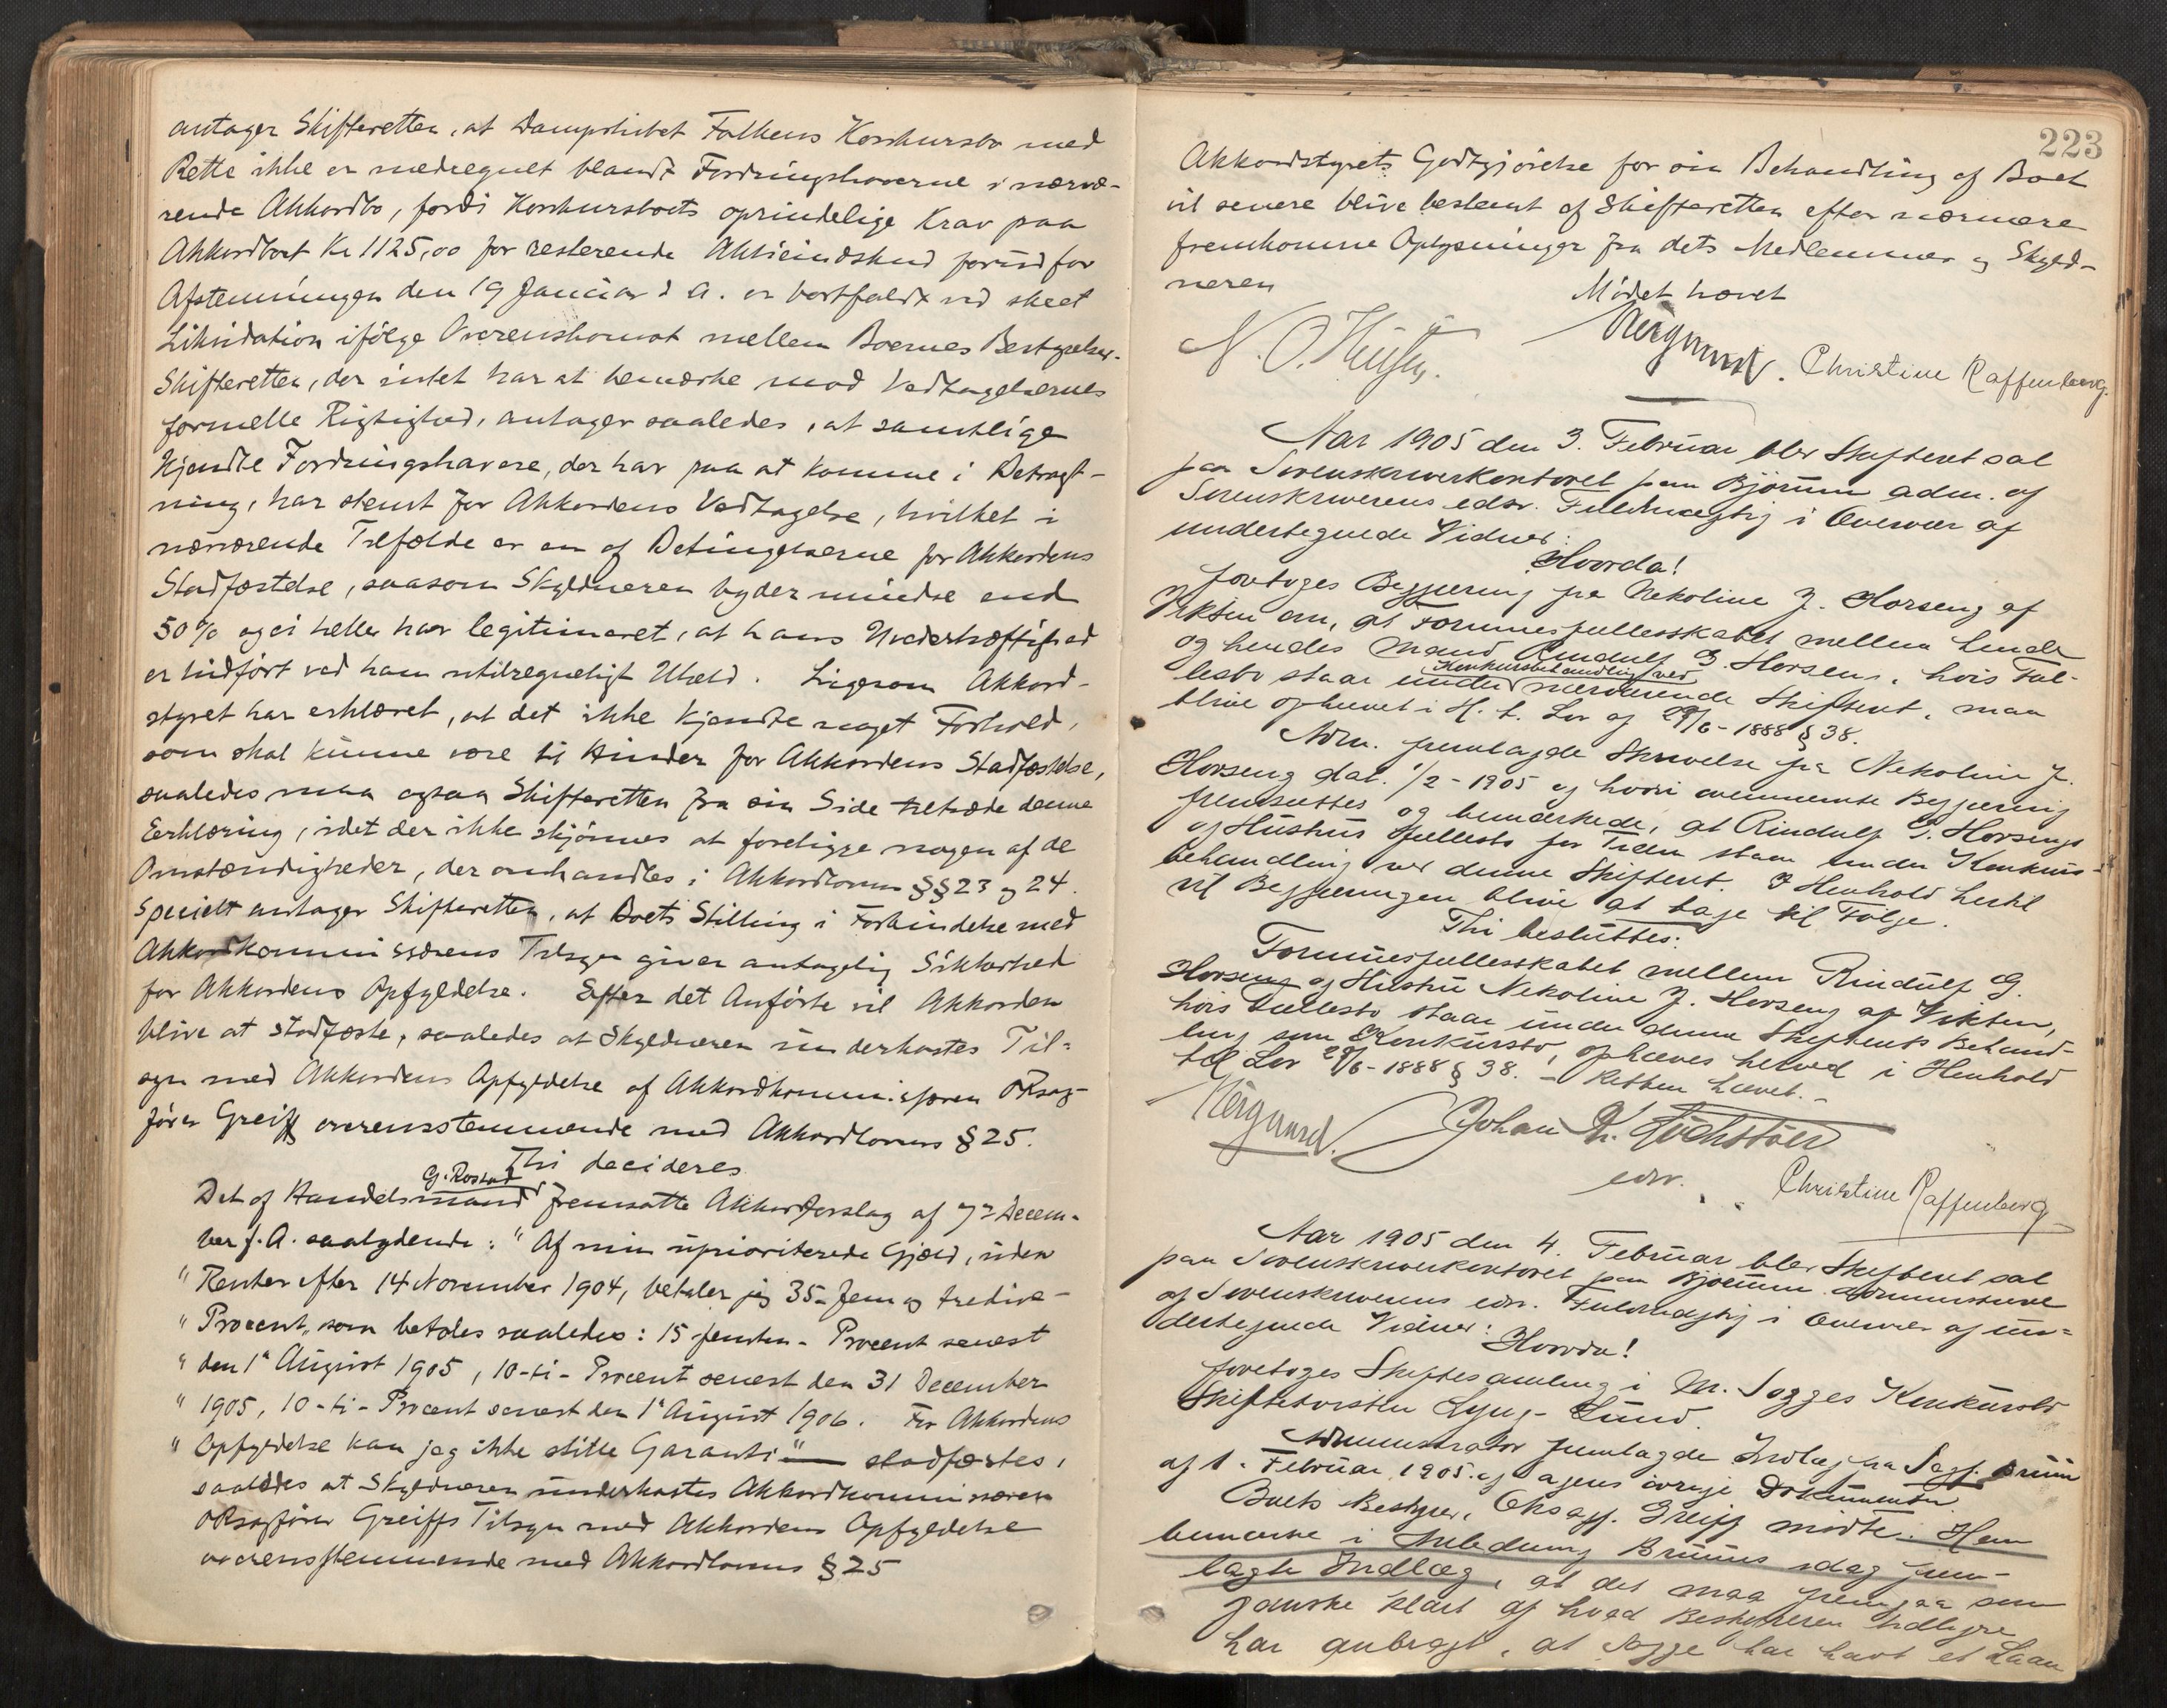 antager Skifteretten, at Dampskibet Falkens Konkursbo med
Rette ikke er medregnet blandt Fordringshaverne i nærvæ-
rende Akkordbo, fordi Konkursboets oprindelige Krav paa
Akkordboet Kr 1125,00 for resterende Aktieindskud forud for
Afstemningen den 19 Januar d A. er bortfaldt ved skeet
Likvidation ifølge Overenskomst mellem Boernes Bestyrelser.
Skifteretten, der intet har at bemærke mod Vedtagelsernes
formelle Rigtighed, antager saaledes, at samtlige
kjendte Fordringshavere, der har paa at komme i Betragt-
ning, har stemt for Akkordens Vedtagelse, hvilket i
nærværende Tilfælde er en af Betingelserne for Akkordens
Stadfæstelse, saasom Skyldneren byder mindre end
50% og ei heller har legitimeret, at hans Uvederhæftighed
er indført ved ham utilregneligt Uheld. Ligesom Akkord-
styret har erklæret, at det ikke kjendte noget Forhold,
som skal kunne være til Hinder for Akkordens Stadfæstelse,
saaledes maa ogsaa Skifteretten fra sin Side tiltræde denne
Erklæring, idet der ikke skjønnes at foreligge nogen af de
Omstændigheder, der omhandles i Akkordlovens §§ 23 og 24.
Specielt antager Skifteretten, at Boets Stilling i Forbindelse med
Akkordkommissærens Tilsyn giver antagelig Sikkerhed
for Akkordens Opfyldelse. Efter det Anførte vil Akkorden
blive at stadfæste, saaledes at Skyldneren underkastes Til-
syn med Akkordens Opfyldelse af Akkordkommissæren ORsag-
fører Greiff overensstemmende med Akkordlovens § 25.
Thi decideres
G. Rostad
Det af Handelsmand fremsatte Akkordforslag af 7de Decem-
ber f. A. saalydende: "Af min uprioriterede Gjæld, uden
" Renter efter 14 November 1904, betaler jeg 35- fem og tredive-
" Procent, som betales saaledes: 15 femten- Procent senest
" den 1ste August 1905, 10-ti- Procent senest den 31 December
" 1905, 10-ti-Procent senest den 1ste August 1906. For Akkordens
" Opfyldelse kan jeg ikke stille Garanti" — stadfæstes,
saaledes at Skyldneren underkastes Akkordkommissæren
ORsagfører Greiffs Tilsyn med Akkordens Opfyldelse
overensstemmende med Akkordlovens § 25
223
Akkordstyrets Godtgjørelse for sin Behandling af Boet
vil senere blive bestemt af Skifteretten efter nærmere
fremkomne Oplysninger fra dets Medlemmer og Skyld-
neren
Mødet hævet
Christine Raffenberg.
Aar 1905 den 3. Februar blev Skifteret sat
paa Sorenskriverkontoret paa Bjørum adm. af
Sorenskriverens edsv. Fuldmægtig i Overvær af
undertegnede Vidner:
Hvorda!
foretoges Begjæring fra Nekoline J. Horseng af
Vikten om, at Formuesfællesskabet mellem hende
og hendes Mand Rindulf G. Horseng, hvis Fæl-
Konkursbehandling ved
lesbo staar under nærværende Skifteret, maa
blive ophævet i H. t. Lov af 29/6-1888 § 38.
Adm. fremlagde Skrivelse fra Nekoline J.
Horseng dat. 1/2-1905 og hvori ovennævnte Begjæring
fremsættes og bemærkede, at Rindulf G. Horsengs
og Hustrus Fællesbo for Tiden staar under Konkurs-
behandling ved denne Skifteret. I Henhold hertil
vil Begjæringen blive at tage til Følge.
Thi besluttes:
Formuesfællesskabet mellem Rindulf G.
Horseng og Hustru Nekoline J. Horseng af Vikten,
hvis Fællesbo staar under denne Skifterets Behand-
ling som Konkursbo, ophæves herved i Henhold
til Lov 29/6-1888 § 38. — Retten hævet. —
Johan
edsv.
Christine Raffenberg
Aar 1905 den 4. Februar blev Skifteret sat
paa Sorenskriverkontoret paa Bjørum administreret
af Sorenskriverens edsv. Fuldmægtig i Overvær af un-
dertegnede Vidner:
Hvorda!
foretoges Skiftesamling i M. Sagges Konkursbo
Skiftetvisten Lyng-Lund.
Administrator fremlagde Indlæg fra Sagf. Bruun
af 1. Februar 1905. og Sagens øvrige Dokumenter.
Boets Bestyrer, Oksagf. Greiff mødte. Han
bemærkede i Anledning Bruuns idag frem-
lagte Indlæg, at det maa fremgaa som
ganske klart af hvad Bestyreren tidligere
har anbragt, at Sagge har havt et Laan